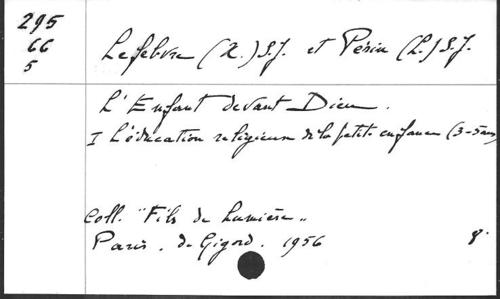 295
66
5
Lefebvre (X.) S.J. et Périn (L.) S.J.
L'Enfant devant Dieu.
I L'éducation religieuse de la petite enfance (3-5 ans)
Coll. "Fils de Lumière"
Paris. de Gigord. 1956 8°